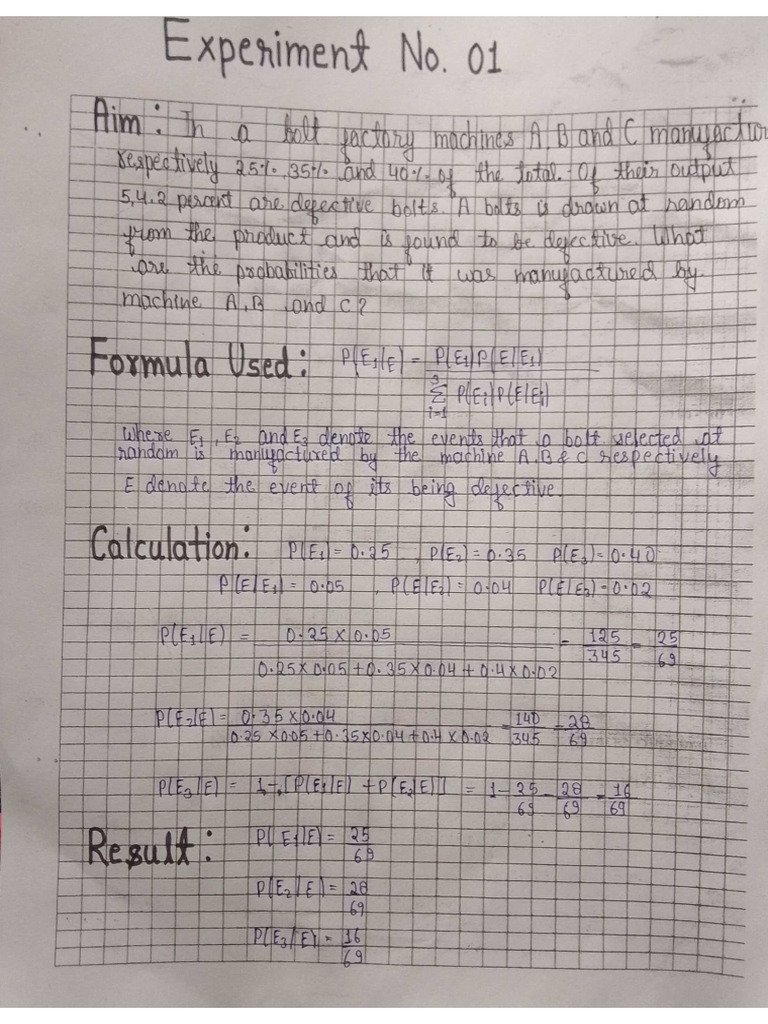 Experiment No. 01
Aim: In a bolt factory machines A, B and C manufactur
respectively 25%, 35% and 40% of the total. Of their output
5,4.2 percent are defective bolts. A bolts is drawn at random
from the product and is found to be defective. What
are the probabilities that it was manufactured by
machine A, B and C?
Formula Used: P(E1/E) = P(E1)P(E/E1)
3
∑ P(Ei)P(E/Ei)
i=1
Where E1, E2 and E3 denote the events that a bolt selected at
random is manufactured by the machine A, B & C respectively
E denote the event of its being defective.
Calculation: P(E1) = 0.25 , P(E2) = 0.35 P(E3) = 0.40
P(E/E1) = 0.05 , P(E/E2) = 0.04 P(E/E3) = 0.02
P(E1/E) = 0.25 x 0.05 = 125 = 25
0.25 x 0.05 + 0.35 x 0.04 + 0.4 x 0.02 345 69
P(E2/E) = 0.35 x 0.04 = 140 = 28
0.25 x 0.05 + 0.35 x 0.04 + 0.4 x 0.02 345 69
P(E3/E) = 1 - [P(E1/E) + P(E2/E)] = 1 - 25 - 28 = 16
69 69 69
Result: P(E1/E) = 25
69
P(E2/E) = 28
69
P(E3/E) = 16
69